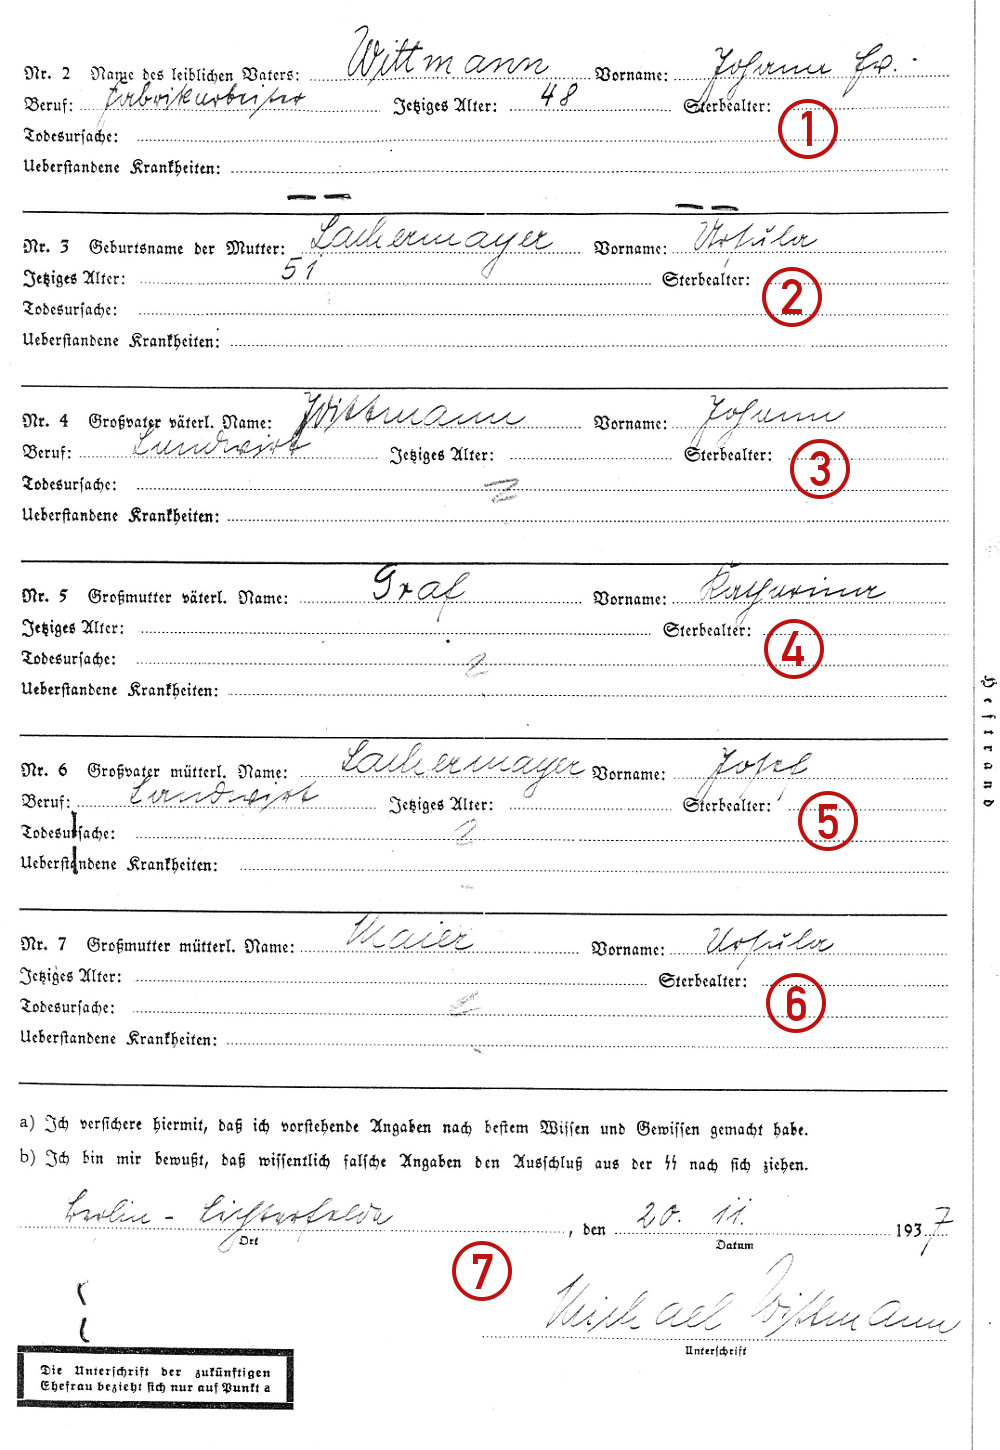 Nr. 2 Name des leiblichen Vaters: Wittmann Vorname: Johann Gg.
Beruf: Fabrikarbeiter Jetziges Alter: 48 Sterbealter:
1
Todesursache:
Ueberstandene Krankheiten:
Nr. 3 Geburtsname der Mutter: Lachermayer Vorname: Ursula
Jetziges Alter: 51 Sterbealter:
2
Todesursache:
Ueberstandene Krankheiten:
Nr. 4 Großvater väterl. Name: Wittmann Vorname: Johann
Beruf: Landwirt Jetziges Alter: Sterbealter:
3
Todesursache:
Ueberstandene Krankheiten:
Nr. 5 Großmutter väterl. Name: Graf Vorname: Katharina
Jetziges Alter: Sterbealter:
4
Todesursache:
Ueberstandene Krankheiten:
Nr. 6 Großvater mütterl. Name: Lachermayer Vorname: Josef
Beruf: Landwirt Jetziges Alter: Sterbealter:
5
Todesursache:
Ueberstandene Krankheiten:
Nr. 7 Großmutter mütterl. Name: Maier Vorname: Ursula
Jetziges Alter: Sterbealter:
6
Todesursache:
Ueberstandene Krankheiten:
a) Ich versichere hiermit, daß ich vorstehende Angaben nach bestem Wissen und Gewissen gemacht habe.
b) Ich bin mir bewußt, daß wissentlich falsche Angaben den Ausschluß aus der ᛋᛋ nach sich ziehen.
Berlin - Lichterfelde, den 20. 11. 1937
Ort Datum
7
Michael Wittmann
Unterschrift
Die Unterschrift der zukünftigen
Ehefrau bezieht sich nur auf Punkt a
Heftrand